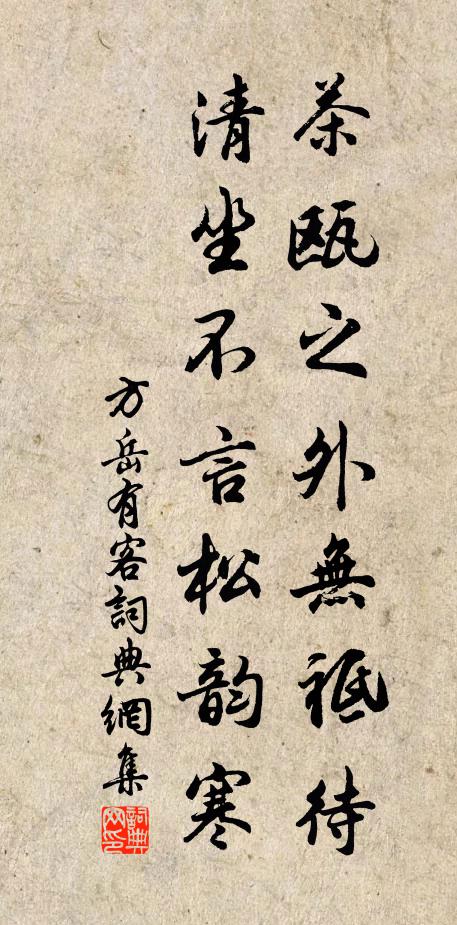 茶瓯之外無祗待
清坐不言松韵寒
方岳有客詞典網集
詞典网印